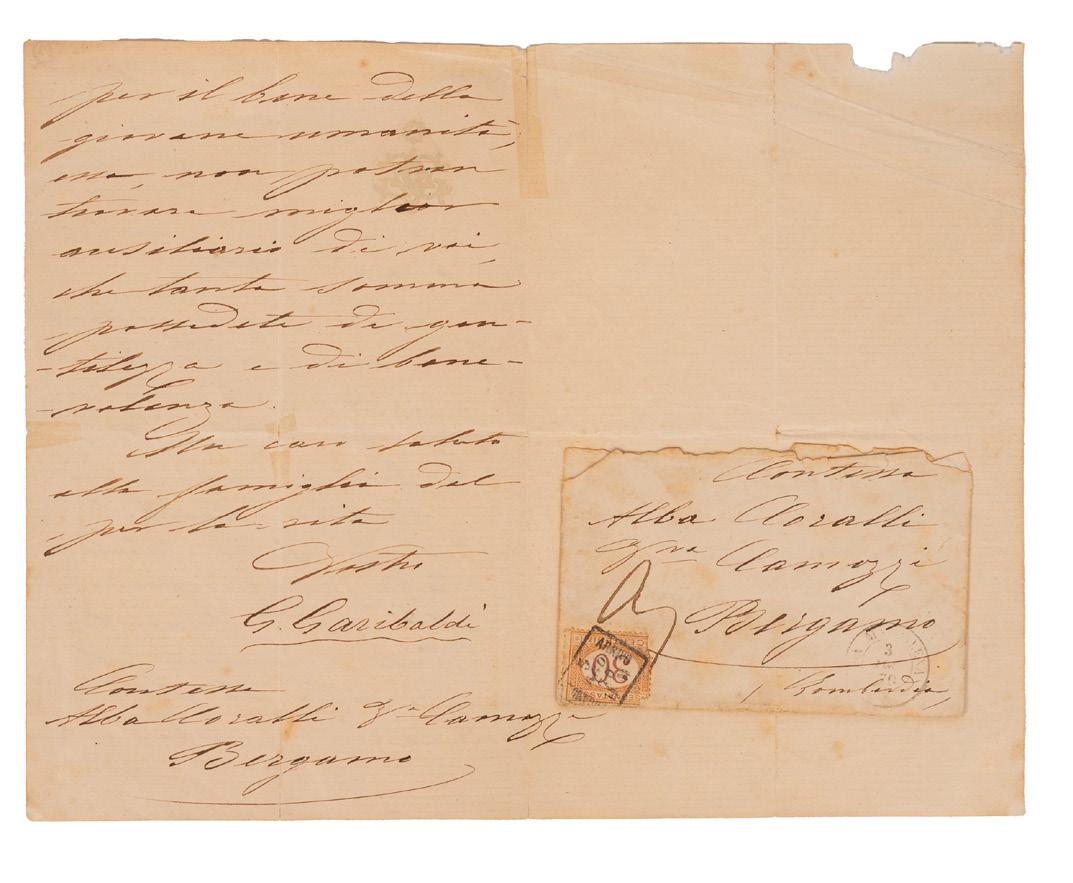 per il bene della
giovane umanità,
essa, non potran
trovare miglior
ausiliario di voi,
che tanta somma
possedete di gen-
-tilezza e di bene-
-volenza.
Un caro saluto
alla famiglia dal
per la vita
Vostro
G. Garibaldi
Contessa
Alba Coralli Va Camozzi
Bergamo
Contessa
Alba Coralli
Vva Camozzi
Bergamo
Lombardia
30
3